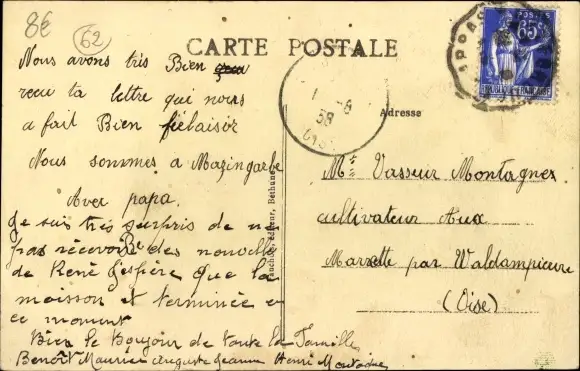 8€
62
CARTE POSTALE
Nous avons très Bien
recu ta lettre qui nous
a fait Bien
Nous sommes a Mazingarbe
Avec papa.
Je suis très surpris de ne
pas récevoir des nouvelle
de René J'espère que la
moisson et terminée a
ce moment
Bien le Boujour de toute la famille
Benoît Maurice Auguste Jeanne Henri Montagne
éditeur, Béthune
1 -8
38
Adresse
Mr Vasseur Montagnez
cultivateur Aux
Marette par Waldampierre
(Oise)
POSTES
65c